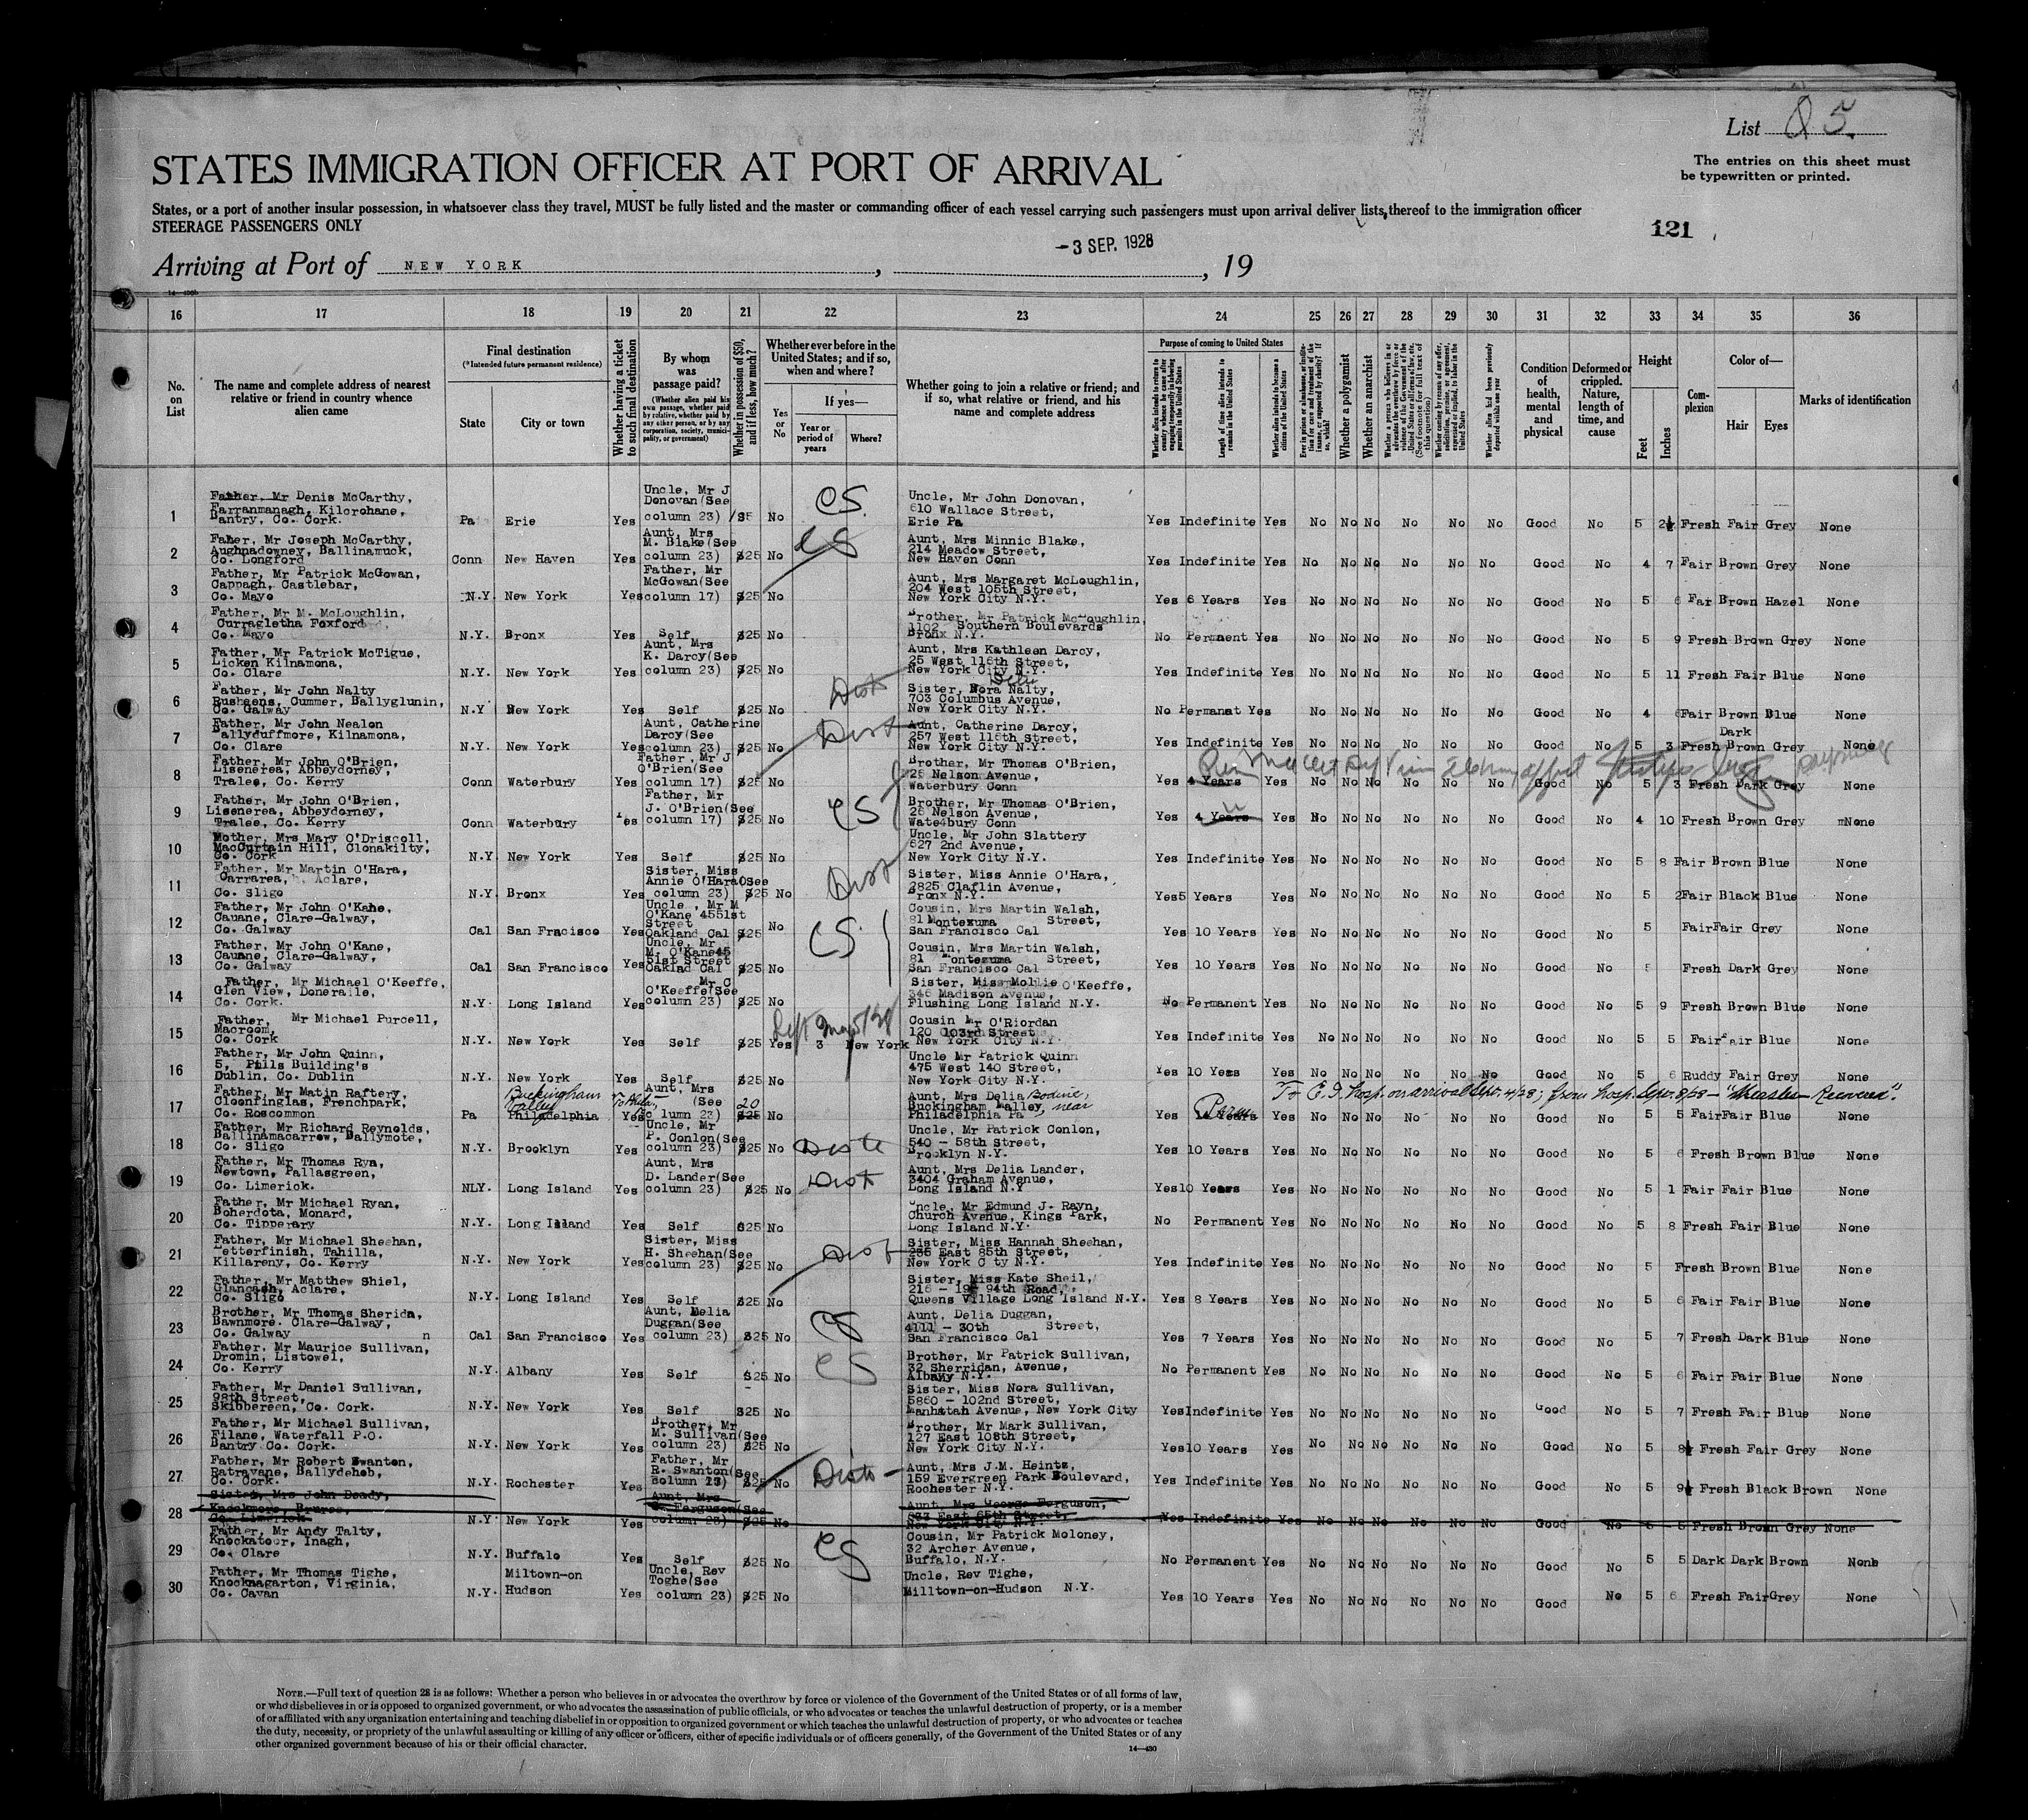 List 85.
The entries on this sheet must
be typewritten or printed.
STATES IMMIGRATION OFFICER AT PORT OF ARRIVAL
States, or a port of another insular possession, in whatsoever class they travel, MUST be fully listed and the master or commanding officer of each vessel carrying such passengers must upon arrival deliver lists thereof to the immigration officer
STEERAGE PASSENGERS ONLY
121
Arriving at Port of NEW YORK, -3 SEP. 1928, 19
14—430b
16 17 18 19 20 21 22 23 24 25 26 27 28 29 30 31 32 33 34 35 36
No. on List
The name and complete address of nearest relative or friend in country whence alien came
Final destination
(*Intended future permanent residence)
State
City or town
Whether having a ticket to such final destination
By whom was passage paid?
(Whether alien paid his own passage, whether paid by relative, whether paid by any other person, or by any corporation, society, municipality, or government)
Whether in possession of $50, and if less, how much?
Whether ever before in the United States; and if so, when and where?
Yes or No
If yes—
Year or period of years
Where?
Whether going to join a relative or friend; and if so, what relative or friend, and his name and complete address
Purpose of coming to United States
Whether alien intends to return to country whence he came after engaging temporarily in laboring pursuits in the United States
Length of time alien intends to remain in the United States
Whether alien intends to become a citizen of the United States
Whether a polygamist
Whether an anarchist
Condition of health, mental and physical
Deformed or crippled. Nature, length of time, and cause
Height
Feet
Inches
Complexion
Color of—
Hair
Eyes
Marks of identification
1 Father, Mr Denis McCarthy, Farranmanagh, Kilcrohane, Bantry, Co. Cork. Pa Erie Yes Uncle, Mr J Donovan (See column 23) No CS Uncle, Mr John Donovan, 610 Wallace Street, Erie Pa Yes Indefinite Yes No No No No No No Good No 5 2½ Fresh Fair Grey None
2 Faher, Mr Joseph McCarthy, Aughnadowney, Ballinamuck, Co. Longford Conn New Haven Yes Aunt, Mrs M. Blake (See column 23) $25 No CS Aunt, Mrs Minnic Blake, 214 Meadow Street, New Haven Conn Yes Indefinite Yes No No No No No No Good No 4 7 Fair Brown Grey None
3 Father, Mr Patrick McGowan, Cappagh, Castlebar, Co. Mayo N.Y. New York Yes Father, Mr McGowan (See column 17) $25 No Aunt, Mrs Margaret McLoughlin, 204 West 105th Street, New York City N.Y. Yes 6 Years Yes No No No No No No Good No 5 6 Far Brown Hazel None
4 Father, Mr M. McLoughlin, Curragletha Foxford Co. Mayo N.Y. Bronx Yes Self $25 No Brother, Mr Patrick McLoughlin, 1102 Southern Boulevards Bronx N.Y. No Permanent Yes No No No No No No Good No 5 9 Fresh Brown Grey None
5 Father, Mr Patrick McTigue, Licken Kilnamona, Co. Clare N.Y. New York Yes Aunt, Mrs K. Darcy (See column 23) $25 No Aunt, Mrs Kathleen Darcy, 25 West 116th Street, New York City N.Y. Yes Indefinite Yes No No No No No No Good No 5 11 Fresh Fair Blue None
6 Father, Mr John Nalty Rusheens, Cummer, Ballyglunin, Co. Galway N.Y New York Yes Self $25 No Dist Sister, Nora Nalty, 703 Columbus Avenue, New York City N.Y. No Permanat Yes No No No No No No Good No 4 6 Fair Brown Blue None
7 Father, Mr John Nealon Ballyduffmore, Kilnamona, Co. Clare N.Y. New York Yes Aunt, Catherine Darcy (See column 23) $25 No Dist Aunt, Catherine Darcy, 257 West 116th Street, New York City N.Y. Yes Indefinite Yes No No No No No No Good No 5 3 Fresh Dark Brown Grey None
8 Father, Mr John O'Brien, Lisenerea, Abbeydorney, Tralee, Co. Kerry Conn Waterbury Yes Father, Mr J O'Brien (See column 17) $25 No Brother, Mr Thomas O'Brien, 26 Nelson Avenue, Waterbury Conn Yes 4 Years Yes No No No No No No Good No 5 3 Fresh Dark Grey None
9 Father, Mr John O'Brien, Lisenerea, Abbeydorney, Tralee, Co. Kerry Conn Waterbury Yes Father, Mr J. O'Brien (See column 17) $25 No CS Brother, Mr Thomas O'Brien, 26 Nelson Avenue, Watebbury Conn Yes 4 Years Yes No No No No No No Good No 4 10 Fresh Brown Grey None
10 Mother, Mrs Mary O'Driscoll, MacCurtain Hill, Clonakilty, Co. Cork N.Y. New York Yes Self $25 No Uncle, Mr John Slattery 627 2nd Avenue, New York City N.Y. Yes Indefinite Yes No No No No No No Good No 5 8 Fair Brown Blue None
11 Father, Mr Martin O'Hara, Carrarea, Aclare, Co. Sligo N.Y. Bronx Yes Sister, Miss Annie O'Hara (See column 23) $25 No Dist Sister, Miss Annie O'Hara, 2825 Claflin Avenue, Bronx N.Y. Yes 5 Years Yes No No No No No No Good No 5 2 Fair Black Blue None
12 Father, Mr John O'Kane, Cauane, Clare-Galway, Co. Galway Cal San Fracisco Yes Uncle, Mr M O'Kane 4551st Street Oakland Cal $25 No CS Cousin, Mrs Martin Walsh, 81 Montezuma Street, San Francisco Cal Yes 10 Years Yes No No No No No No Good No 5 Fair Fair Grey None
13 Father, Mr John O'Kane, Cauane, Clare-Galway, Co. Galway Cal San Francisco Yes Uncle, Mr M. O'Kane 45 51st Street Oaklad Cal $25 No Cousin, Mrs Martin Walsh, 81 Montezuma Street, San Francisco Cal Yes 10 Years Yes No No No No No No Good No 5 Fresh Dark Grey None
14 Father, Mr Michael O'Keeffe, Glen View, Doneraile, Co. Cork. N.Y. Long Island Yes Mr C O'Keeffe (See column 23) $25 No Sister, Miss Mollie O'Keeffe, 346 Madison Avenue, Flushing Long Island N.Y. No Permanent Yes No No No No No No Good No 5 9 Fresh Brown Blue None
15 Father, Mr Michael Purcell, Macroom, Co. Cork N.Y. New York Yes Self $25 Yes 3 New York Cousin Mr O'Riordan 120 103rd Street New York City N.Y. Yes Indefinite Yes No No No No No No Good No 5 5 Fair Fair Blue None
16 Father, Mr John Quinn, 5, Pills Building's Dublin, Co. Dublin N.Y. New York Yes Self $25 No Uncle Mr Patrick Quinn 475 West 140 Street, New York City N.Y. Yes 10 Years Yes No No No No No No Good No 5 6 Ruddy Fair Grey None
To E.I. Hosp. on arrival Sept. 4/28; from hosp. Sept. 8/28 — "Measles — Recovered".
17 Father, Mr Matin Raftery, Cloonfinglas, Frenchpark, Co. Roscommon Pa Buckingham Valley Philadelphia Yes Aunt, Mrs (See column 23) 20 $25 No Aunt, Mrs Delia Bodine, Buckingham Valley, near Philadelphia Pa Yes Perm Years Yes No No No No No No Good No 5 5 Fair Fair Blue None
18 Father, Mr Richard Reynolds, Ballinamacarrow, Ballymote, Co. Sligo N.Y. Brooklyn Yes Uncle, Mr P. Conlon (See column 23) $25 No Dist Uncle, Mr Patrick Conlon, 540 - 58th Street, Brooklyn N.Y. Yes 10 Years Yes No No No No No No Good No 5 6 Fresh Brown Blue None
19 Father, Mr Thomas Ryn, Newtown, Pallasgreen, Co. Limerick. NLY. Long Island Yes Aunt, Mrs D. Lander (See column 23) $25 No Dist Aunt, Mrs Delia Lander, 3404 Graham Avenue, Long Island N.Y Yes 10 Years Yes No No No No No No Good No 5 1 Fair Fair Blue None
20 Father, Mr Michael Ryan, Boherdota, Monard, Co. Tipperary N.Y. Long Island Yes Self $25 No Uncle, Mr Edmund J. Rayn, Church Avenue, Kings Park, Long Island N.Y. No Permanent Yes No No No No No No Good No 5 8 Fresh Fair Blue None
21 Father, Mr Michael Sheehan, Letterfinish, Tahilla, Killareny, Co. Kerry N.Y. New York Yes Sister, Miss H. Sheehan (See column 23) $25 No Dist Sister, Miss Hannah Sheehan, 235 East 85th Street, New York C ty N.Y. Yes Indefinite Yes No No No No No No Good No 5 Fresh Brown Blue None
22 Father, Mr Matthew Shiel, Glancash, Aclare, Co. Sligo N.Y. Long Island Yes Self $25 No Sister, Miss Kate Sheil, 216 - 94th Road, Queens Village Long Island N.Y. Yes 8 Years Yes No No No No No No Good No 5 6 Fair Fair Blue None
23 Brother, Mr Thomas Sherida, Bawnmore. Clare-Galway, Co. Galway n Cal San Francisco Yes Aunt, Delia Duggan (See column 23) $25 No CS Aunt, Delia Duggan, 4111 - 30th Street, San Francisco Cal Yes 7 Years Yes No No No No No No Good No 5 7 Fresh Dark Blue None
24 Father, Mr Maurice Sullivan, Dromin, Listowel, Co. Kerry N.Y. Albany Yes Self $25 No CS Brother, Mr Patrick Sullivan, 32 Sherridan, Avenue, Albany N.Y. No Permanent Yes No No No No No No Good No 5 6 Fair Fair Blue None
25 Father, Mr Daniel Sullivan, 98th Street, Skibbereen, Co. Cork. N.Y. New York Yes Self $25 No Sister, Miss Nora Sullivan, 5860 - 102nd Street, Manhatah Avenue, New York City Yes Indefinite Yes No No No No No No Good No 5 7 Fresh Fair Blue None
26 Father, Mr Michael Sullivan, Filane, Waterfall P.O. Bantry Co. Cork. N.Y. New York Yes Brother, Mr M. Sullivan (See column 23) $25 No Brother, Mr Mark Sullivan, 127 East 108th Street, New York City N.Y. Yes 10 Years Yes No No No No No No Good No 5 8½ Fresh Fair Grey None
27 Father, Mr Robert Swanton, Ratravane, Ballydehob, Co. Cork. N.Y. Rochester Yes Father, Mr R. Swanton (See column 17) $25 No Dist Aunt, Mrs J.M. Heintz, 159 Evergreen Park Boulevard, Rochester N.Y. Yes Indefinite Yes No No No No No No Good No 5 9½ Fresh Black Brown None
28 Sister, Mrs John Deady, Knockmore, Bruree, Co. Limerick N.Y. New York Yes Aunt, Mrs G. Ferguson (See column 23) $25 No Aunt, Mrs George Ferguson, 633 East 65th Street, New York City N.Y. Yes Indefinite Yes No No No No No No Good No 5 5 Fresh Brown Grey None
29 Father, Mr Andy Talty, Knockatoor, Inagh, Co. Clare N.Y. Buffalo Yes Self $25 No CS Cousin, Mr Patrick Moloney, 32 Archer Avenue, Buffalo, N.Y. No Permanent Yes No No No No No No Good No 5 5 Dark Dark Brown None
30 Father, Mr Thomas Tighe, Knocknagarton, Virginia, Co. Cavan N.Y. Miltown-on Hudson Yes Uncle, Rev Toghe (See column 23) $25 No Uncle, Rev Tighe, Milltown-on-Hudson N.Y. Yes 10 Years Yes No No No No No No Good No 5 6 Fresh Fair Grey None
NOTE.—Full text of question 28 is as follows: Whether a person who believes in or advocates the overthrow by force or violence of the Government of the United States or of all forms of law,
or who disbelieves in or is opposed to organized government, or who advocates the assassination of public officials, or who advocates or teaches the unlawful destruction of property, or is a member
of or affiliated with any organization entertaining and teaching disbelief in or opposition to organized government or which teaches the unlawful destruction of property, or who advocates or teaches
the duty, necessity, or propriety of the unlawful assaulting or killing of any officer or officers, either of specific individuals or of officers generally, of the Government of the United States or of any
other organized government because of his or their official character.
14—430